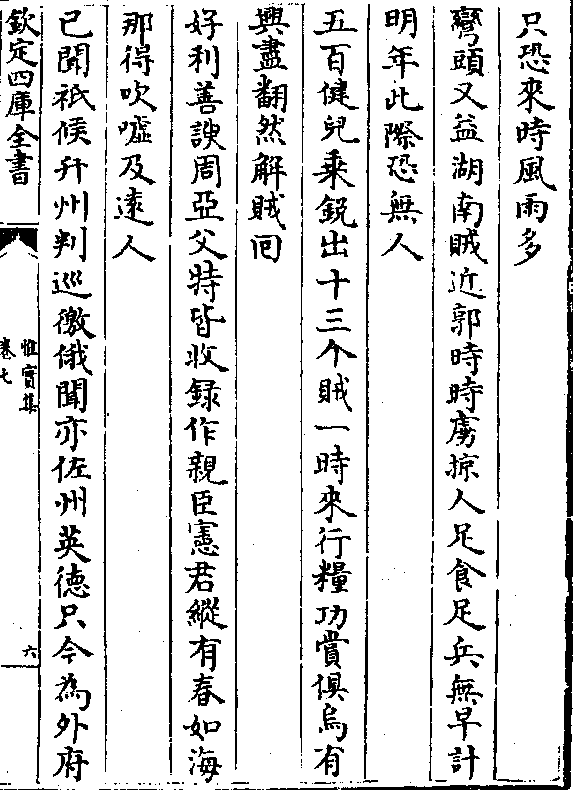 只恐來時風雨多
彎頭又益湖南賊近郭時時虜掠人足食足兵無早計
明年此際恐無人
五百健兒乗鋭出十三个賊一時來行糧功賞俱烏有
興盡翻然解賊回
好利善諛周亞父特皆收録作親臣憲君縱有春如海
那得吹噓及逺人
已聞祇候升州判巡徼俄聞亦佐州英德只今為外府
欽定四庫全書
惟實集
卷七
六